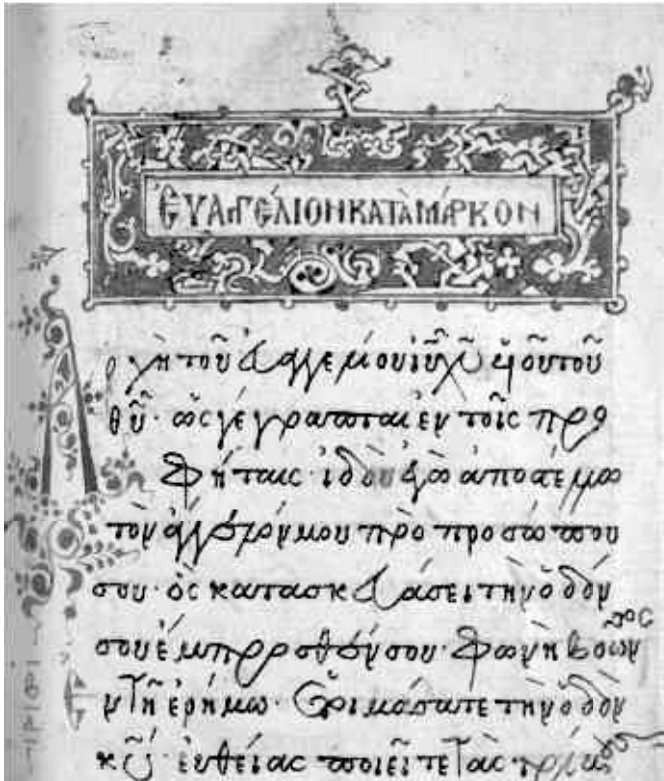 ΕΥΑΓΓΕΛΙΟΝ ΚΑΤᾺ ΜΆΡΚΟΝ
Ἀρχὴ τοῦ εὐαγγελίου ἰῦ χῦ υἱοῦ τοῦ
θῦ· ὡς γέγραπται ἐν τοῖς προ
φήταις· ἰδοὺ ἐγὼ ἀποστέλλω
τὸν ἄγγελόν μου πρὸ προσώπου
σου· ὃς κατασκευάσει τὴν ὁδόν
σου ἔμπροσθέν σου· Φωνὴ βοῶντος
ἐν τῇ ἐρήμω· Ἑτοιμάσατε τὴν ὁδὸν
κῦ· εὐθείας ποιεῖτε τὰς τρίβους